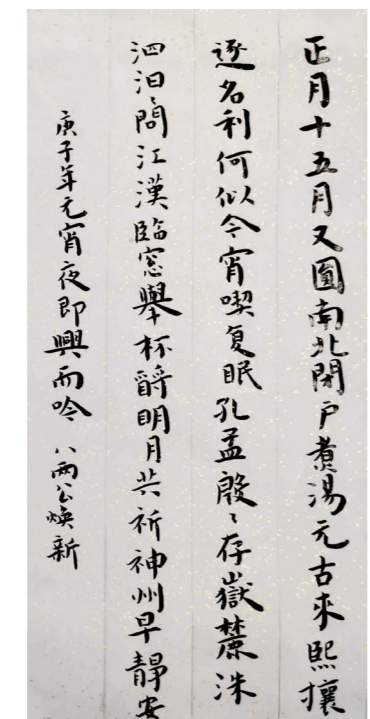 正月十五月又圓南北閉戶煮湯元古來熙攘
逐名利何似今宵喫复眠孔孟殷〻存嶽麓洙
泗汩〻問江漢臨窓舉杯酹明月共祈神州早靜安
庚子年元宵夜即興而吟 八兩公煥新